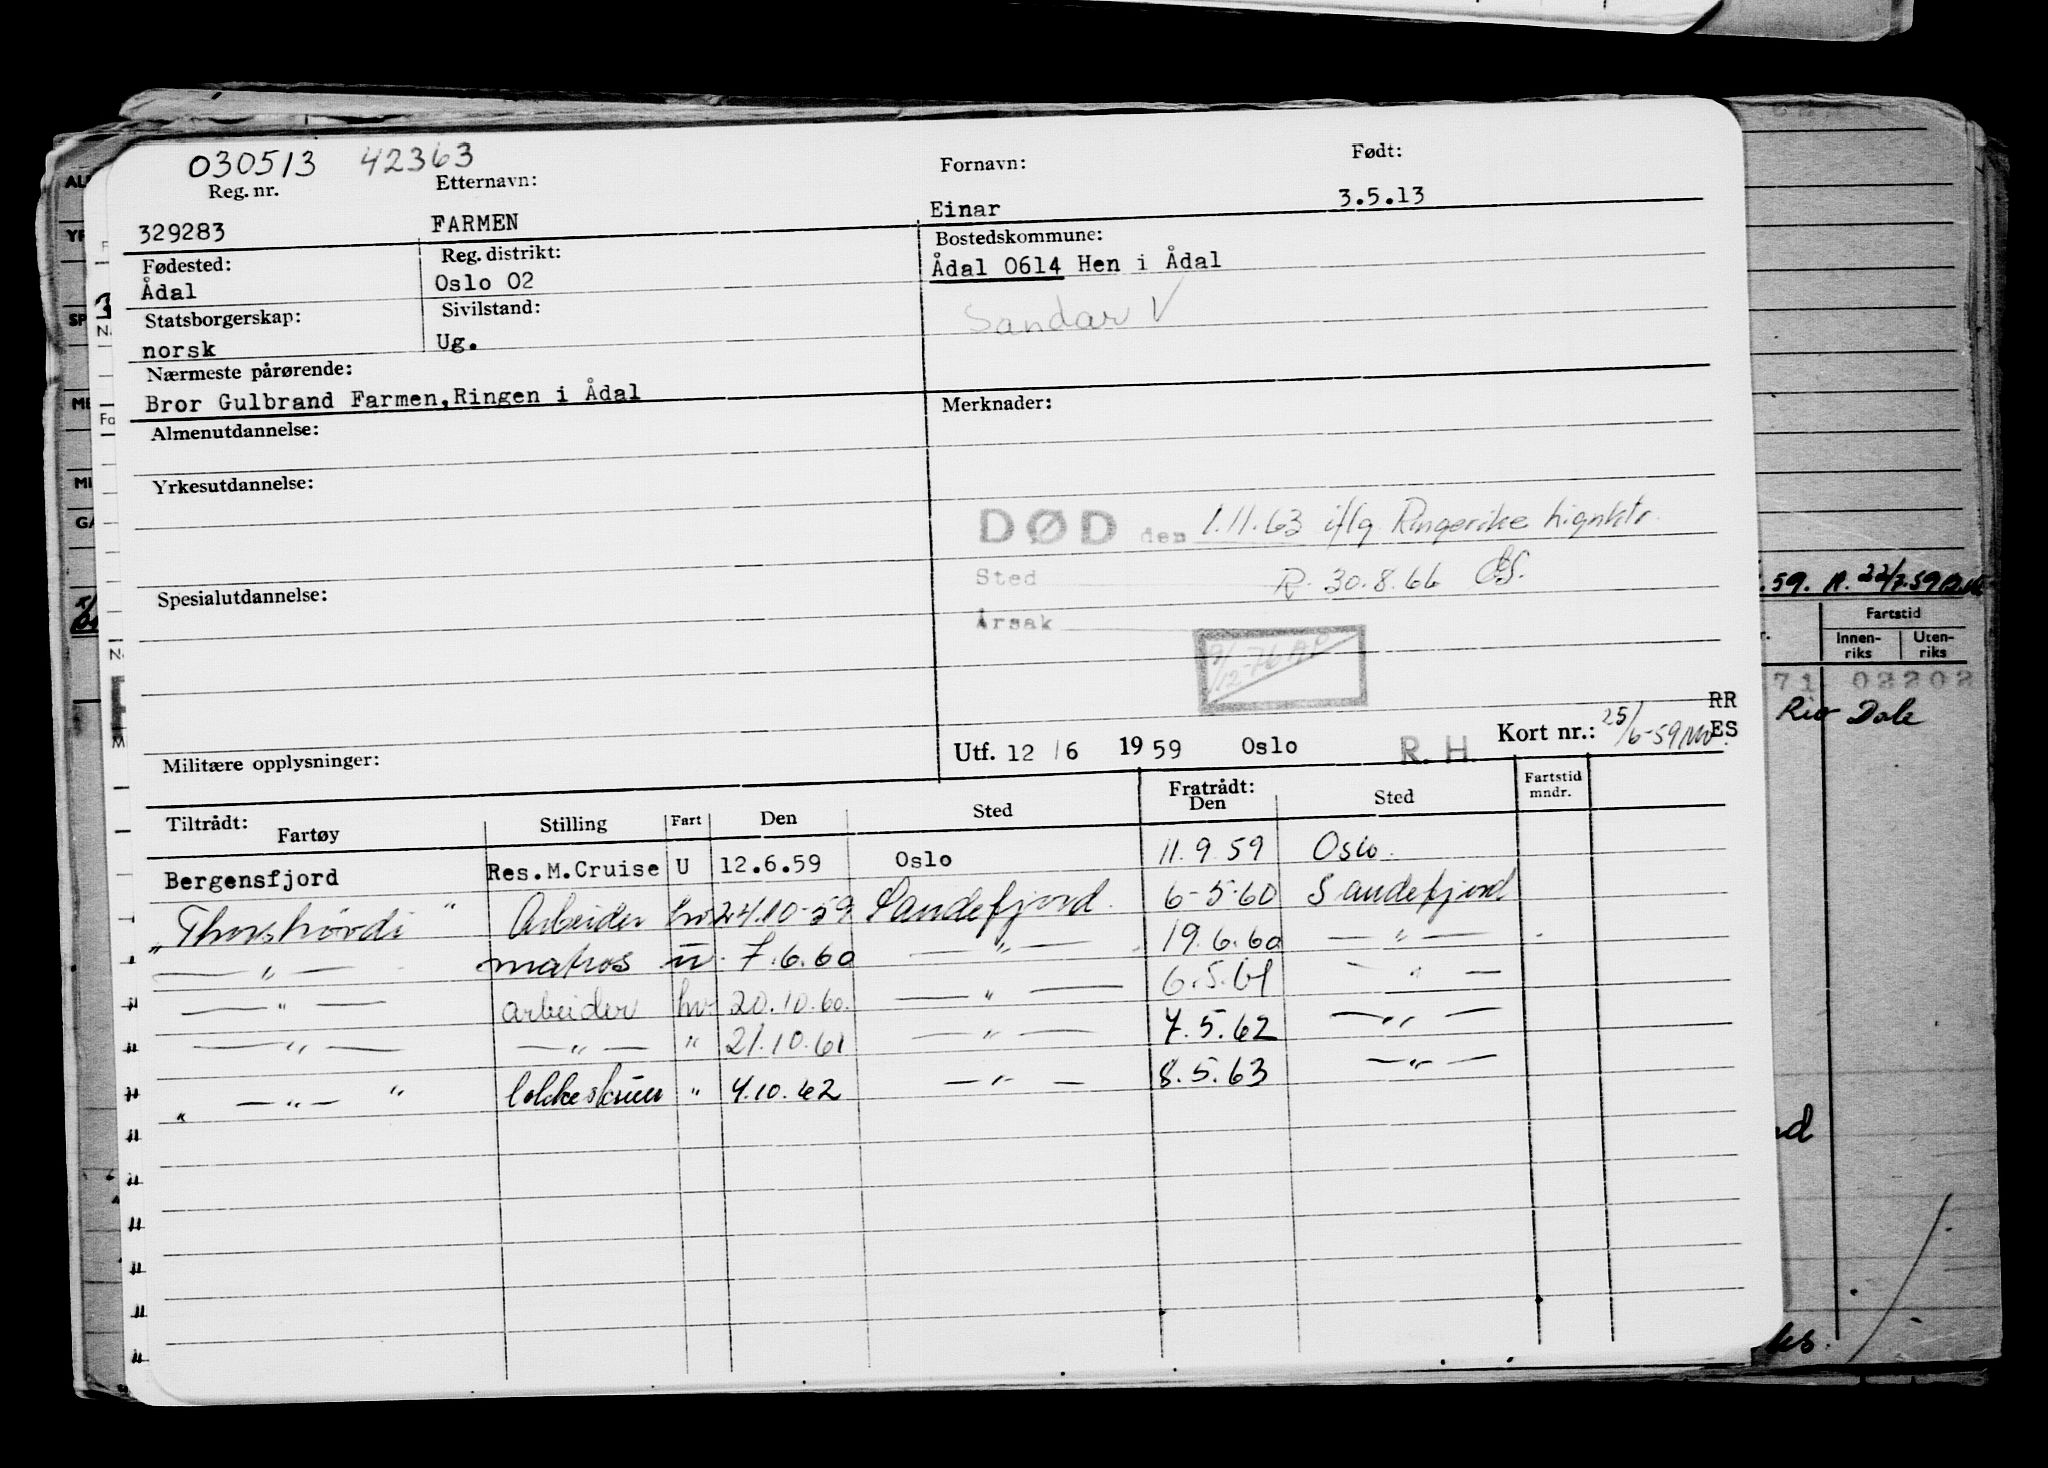 030513 42363
Reg. nr. Etternavn: Fornavn: Født:
329283 FARMEN Einar 3.5.13
Fødested: Reg. distrikt: Bostedskommune:
Ådal Oslo 02 Ådal 0614 Hen i Ådal
Statsborgerskap: Sivilstand: Sandar V
norsk Ug.
Nærmeste pårørende:
Bror Gulbrand Farmen,Ringen i Ådal
Almenutdannelse: Merknader:
Yrkesutdannelse:
DØD den 1.11.63 iflg Ringerike lignktr.
Sted R. 30.8.66
Spesialutdannelse:
Årsak
9/12-76
RR
Militære opplysninger: Utf. 12/6 1959 Oslo R.H. Kort nr.: 25/6-59 ES
Tiltrådt: Fratrådt:
Fartøy Stilling Fart Den Sted Den Sted Fartstid mndr.
Bergensfjord Res.M.Cruise U 12.6.59 Oslo 11.9.59 Oslo.
"Thorshövdi" Arbeider hv 24.10-59 Sandefjord. 6-5-60 Sandefjord
— " — matros u. 7.6.60 — " — 19.6.60 — " —
— " — arbeider hv. 20.10.60. — " — 6.5.61 — " —
— " — — " — " 21.10.61 — " — 7.5.62 — " —
" — " — " " 4.10.62 — " — 8.5.63 — " —
.59. A. 22/7.59
Fartstid
Innen-riks Uten-riks
71 02202
Rio Dale